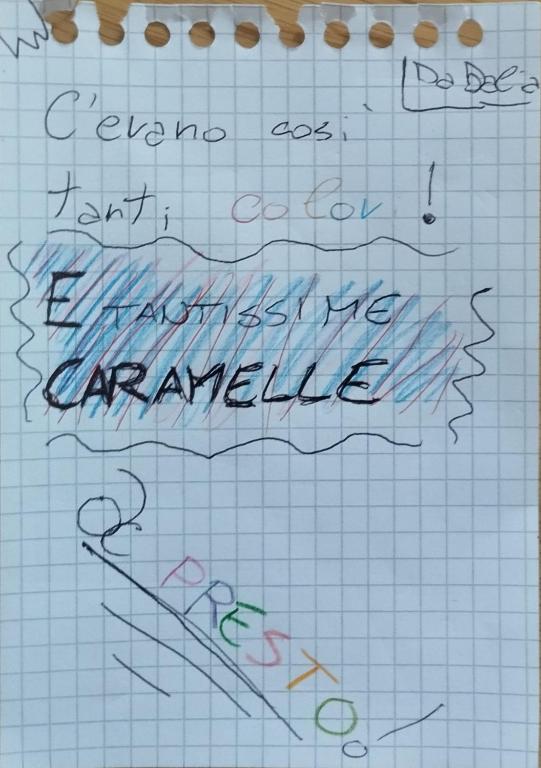 Da Dalia
C'erano così
tanti color !
E TANTISSIME
CARAMELLE
PRESTO